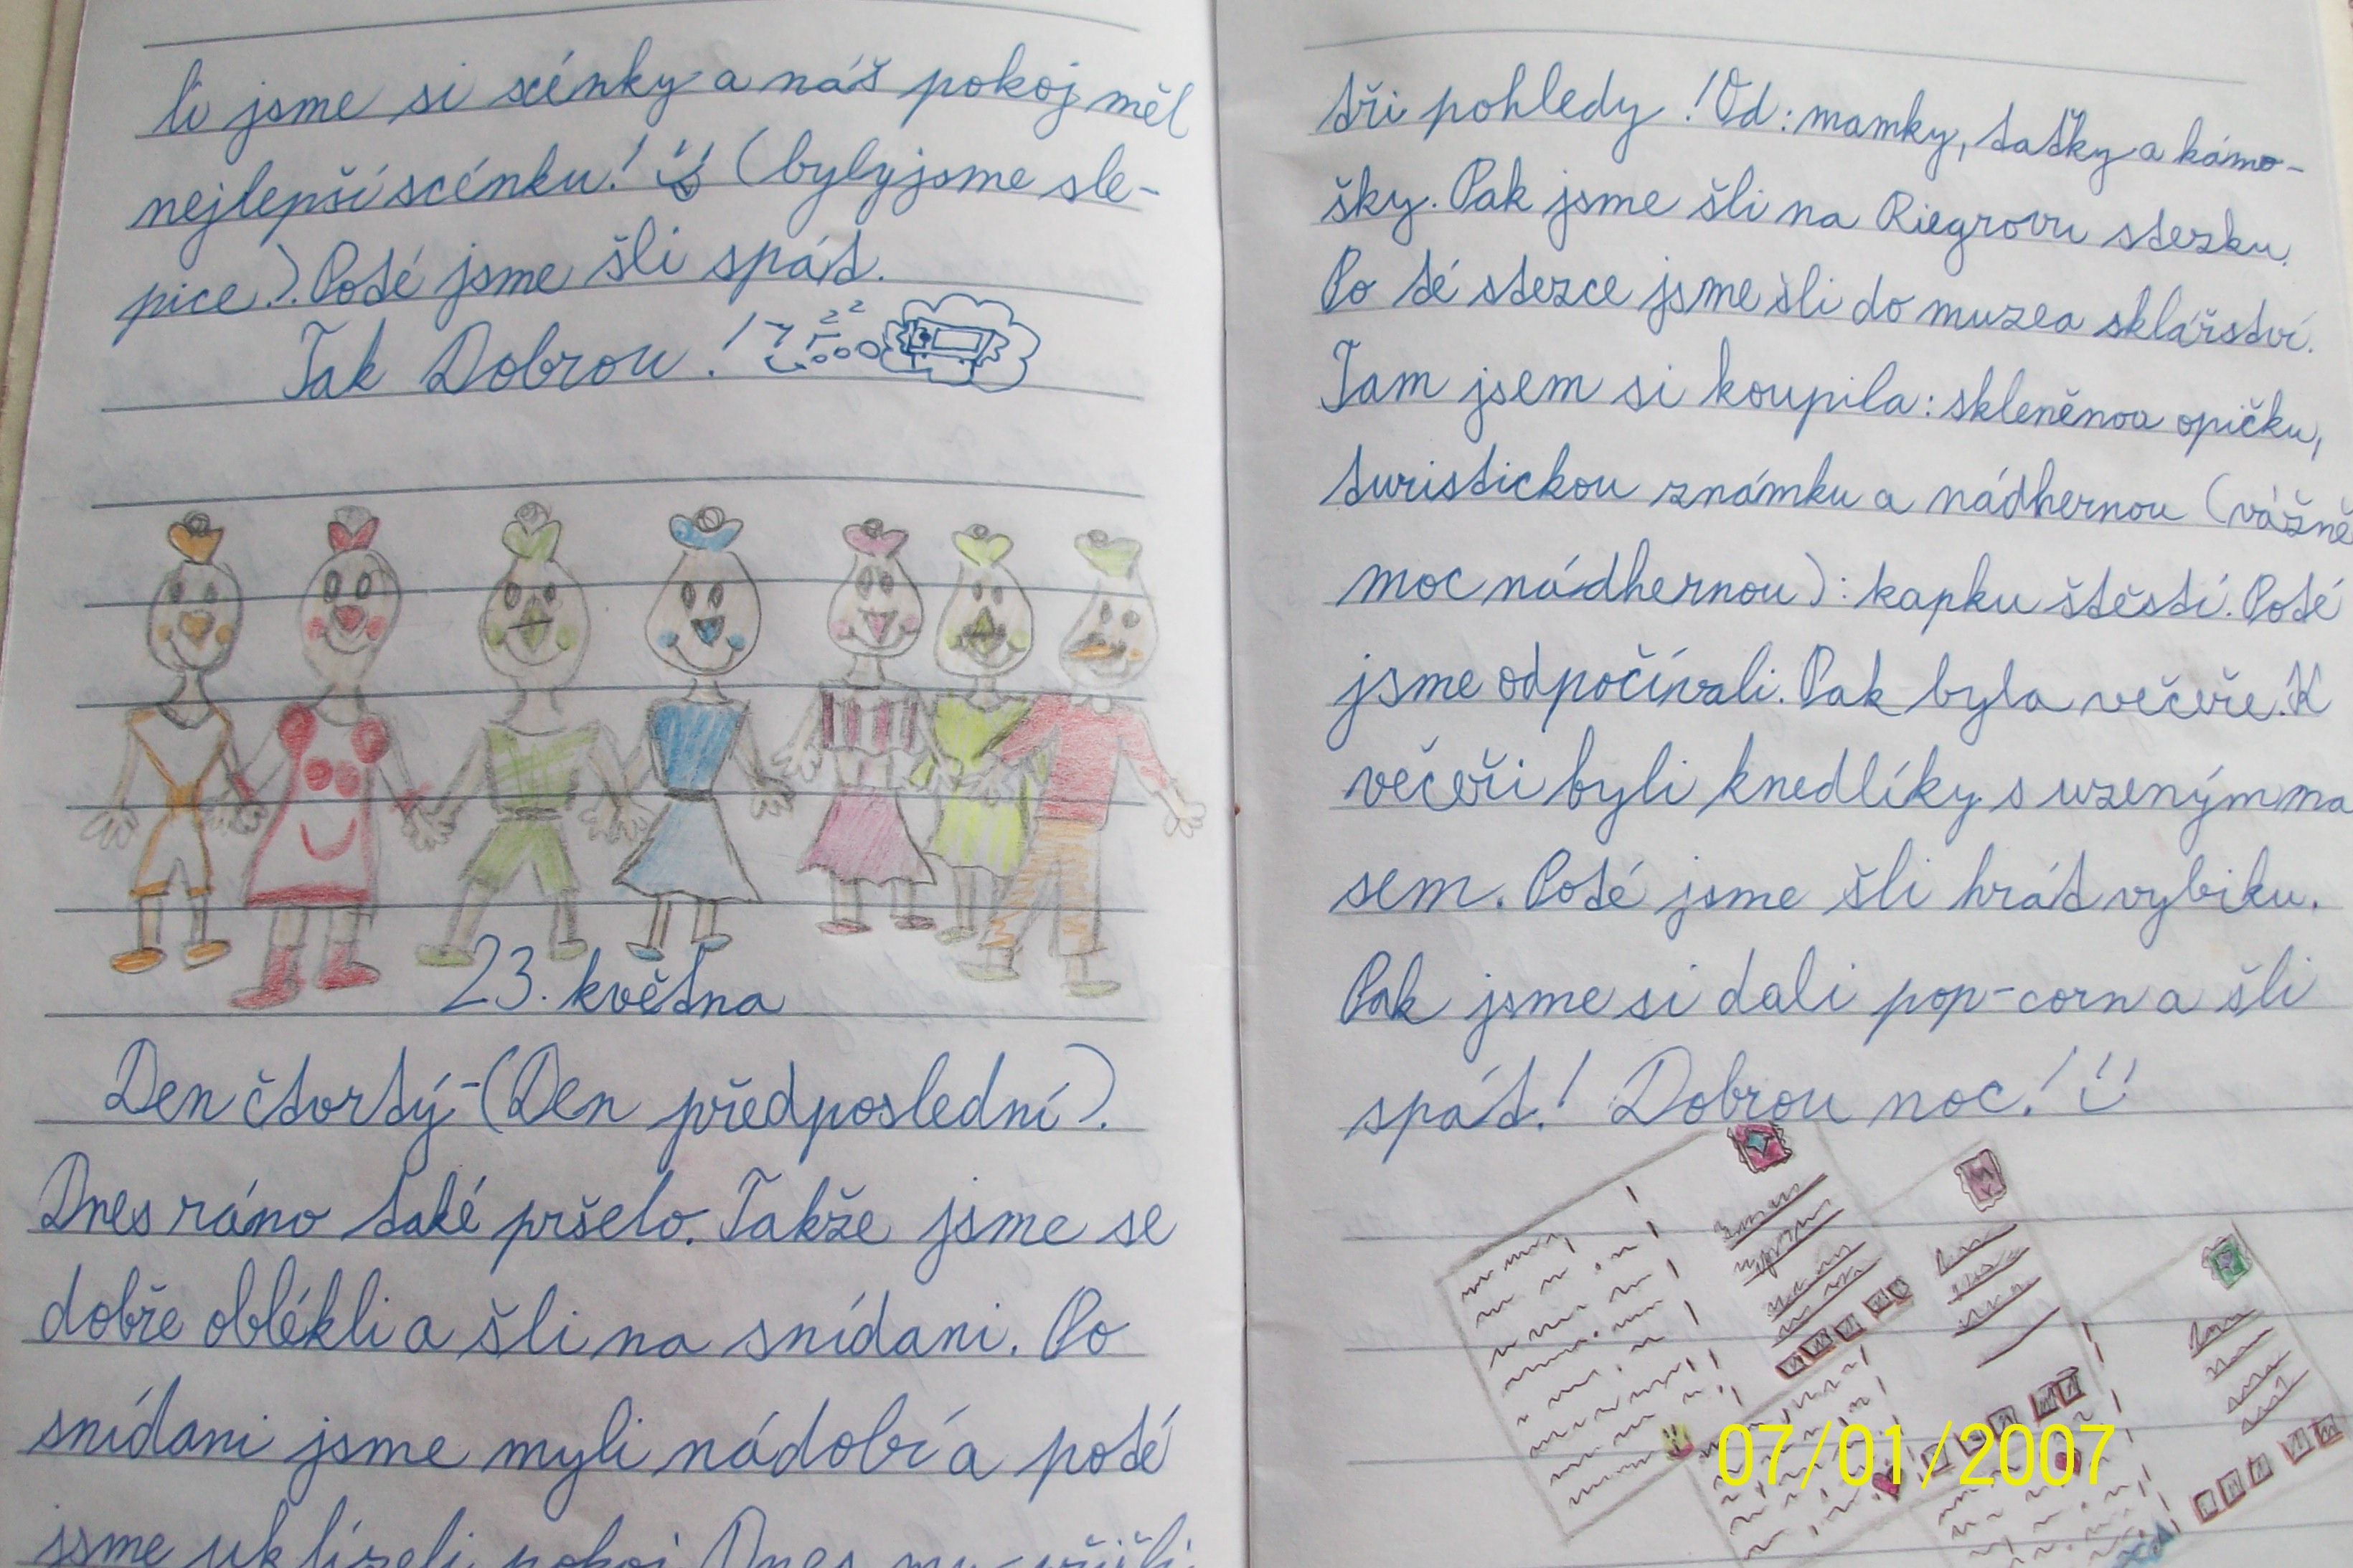 li jsme si scénky a náš pokoj měl
nejlepší scénku! (byly jsme sle-
pice.). Poté jsme šli spát.
Tak Dobrou!
23. května
Den čtvrtý - (Den předposlední).
Dnes ráno také pršelo. Takže jsme se
dobře oblékli a šli na snídani. Po
snídani jsme myli nádobí a poté
jsme uklízeli pokoj. Dnes
tři pohledy! Od: mamky, taťky a kámo-
šky. Pak jsme šli na Riegrovu stezku.
Po té stezce jsme šli do muzea sklářství.
Tam jsem si koupila: skleněnou opičku,
turistickou známku a nádhernou (vážně
moc nádhernou): kapku štěstí. Poté
jsme odpočívali. Pak byla večeře. K
večeři byli knedlíky s uzeným ma
sem. Poté jsme šli hrát vybiku.
Pak jsme si dali pop-corn a šli
spát! Dobrou noc!
07/01/2007